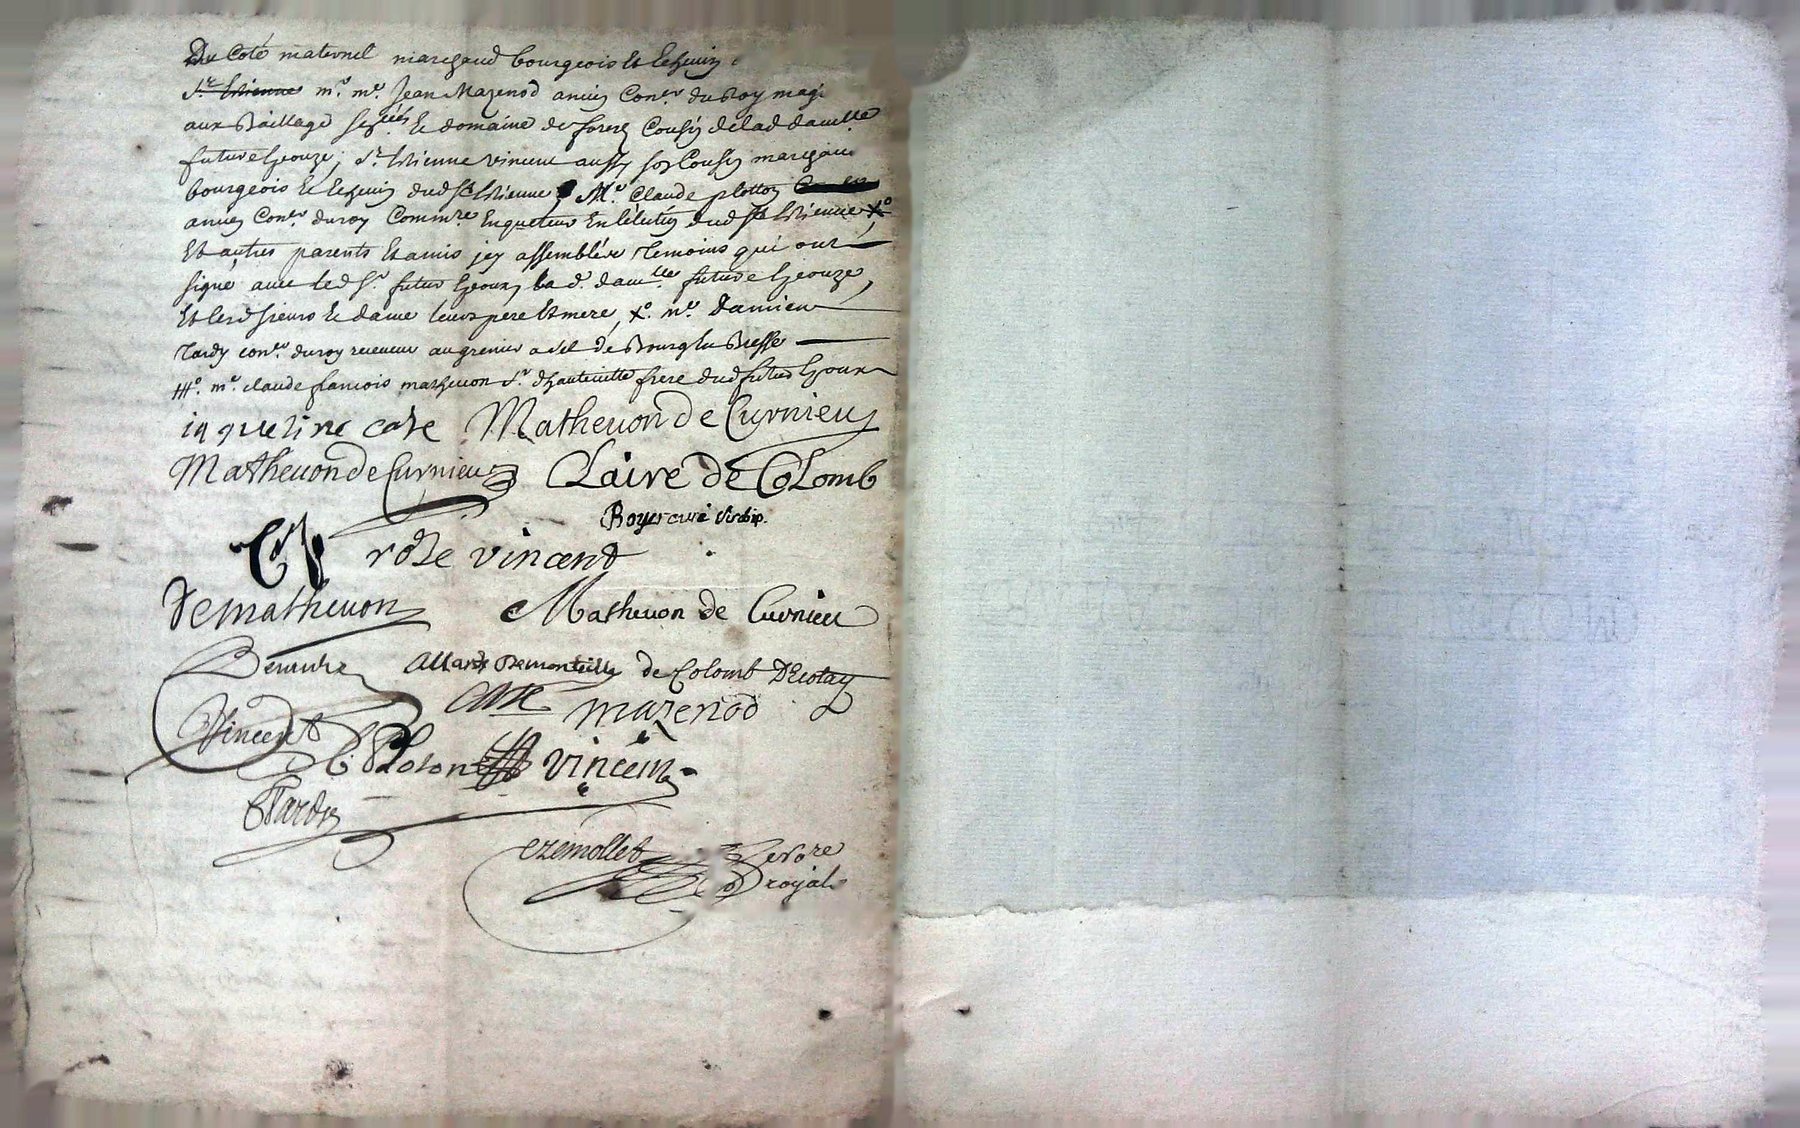 Du Coté maternel marchand bourgeois et Echevin
St Estienne mr. me. Jean Mazenod ancien Coner. du Roy
aux Baillage et domaine de forest Cousin de lad. damlle.
future Epouze, sr. Estienne vincent aussy son Cousin marchand
bourgeois et Echevin dud. St Estienne Me. Claude plotton
ancien Coner. du roy Commre. Enqueteur En l'élection dud. St Estienne
Et autres parents Et amis icy assemblés Temoins qui ont
signé avec led. sr. futur Epoux, la d. damlle. future Epouze,
Et lesd. sieurs Et dame leurs pere Et mere, me. Damien
Tardy coner. du roy receveur au grenier a sel de Bourg En Bresse
me. claude francois mathevon sr. d'hauteville frere dud. futur Epoux
iaqueline cose Mathevon de Curnieu
Mathevon de Curnieu Claire de Colomb
Royer curé
rose vincent
de mathevon Mathevon de Curnieu
Allard de Colomb D'Ecotay
mazenod
Vincent C. Ploton vincent
Tardy
ezemollet
royal